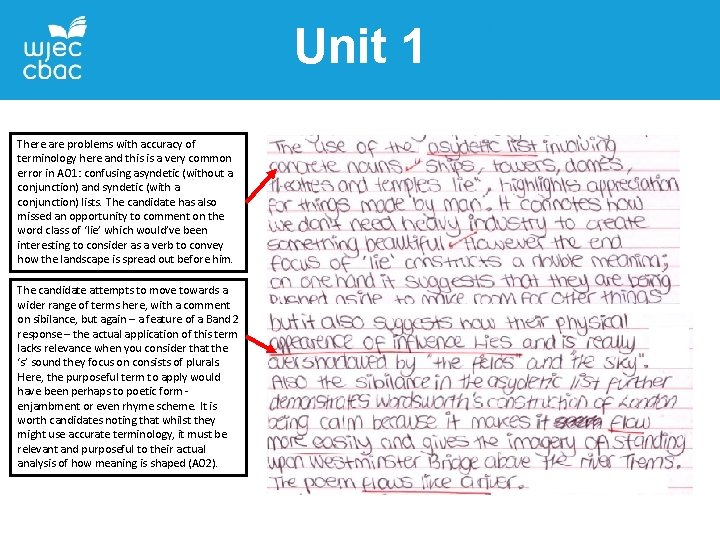 wjec
cbac
Unit 1
There are problems with accuracy of
terminology here and this is a very common
error in AO1: confusing asyndetic (without a
conjunction) and syndetic (with a
conjunction) lists. The candidate has also
missed an opportunity to comment on the
word class of ‘lie’ which would’ve been
interesting to consider as a verb to convey
how the landscape is spread out before him.
The candidate attempts to move towards a
wider range of terms here, with a comment
on sibilance, but again – a feature of a Band 2
response – the actual application of this term
lacks relevance when you consider that the
‘s’ sound they focus on consists of plurals.
Here, the purposeful term to apply would
have been perhaps to poetic form -
enjambment or even rhyme scheme. It is
worth candidates noting that whilst they
might use accurate terminology, it must be
relevant and purposeful to their actual
analysis of how meaning is shaped (AO2).
The use of the asydetic list involving
concrete nouns "ships, towers, domes,
theatres and temples lie", highlights appreciation
for things made by man. It connotes how
we don't need heavy industry to create
something beautiful. However the end
focus of 'lie' constructs a double meaning,
on one hand it suggests that they are being
pushed aside to make room for other things
but it also suggests how their physical
appearence of influence lies and is really
overshadowed by "the fields" and "the sky".
Also the sibilance in the asydetic list further
demonstrates Wordsworth's construction of London
being calm because it makes it flow
more easily and gives the imagery of standing
upon Westminster Bridge above the river Thems.
The poem flows like a river.